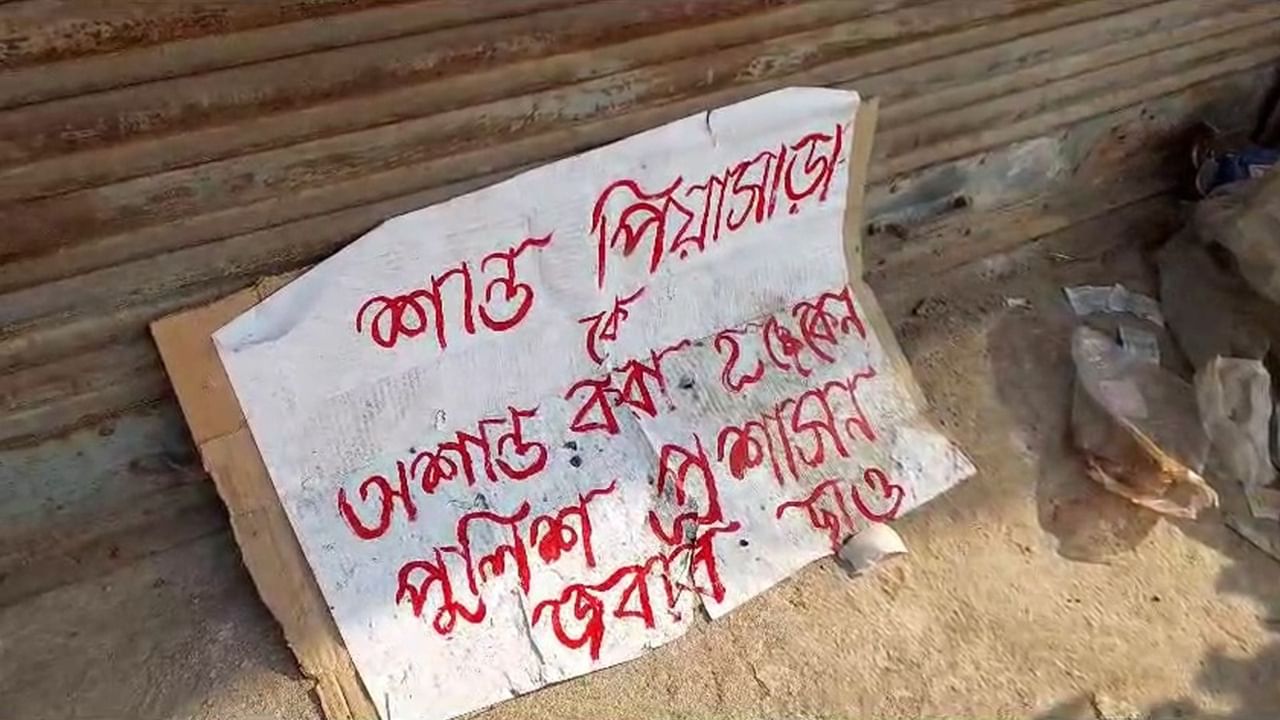 শান্ত পিয়াসাড়া
কে
অশান্ত করা হচ্ছে কেন
পুলিশ প্রশাসন
জবাব দাও